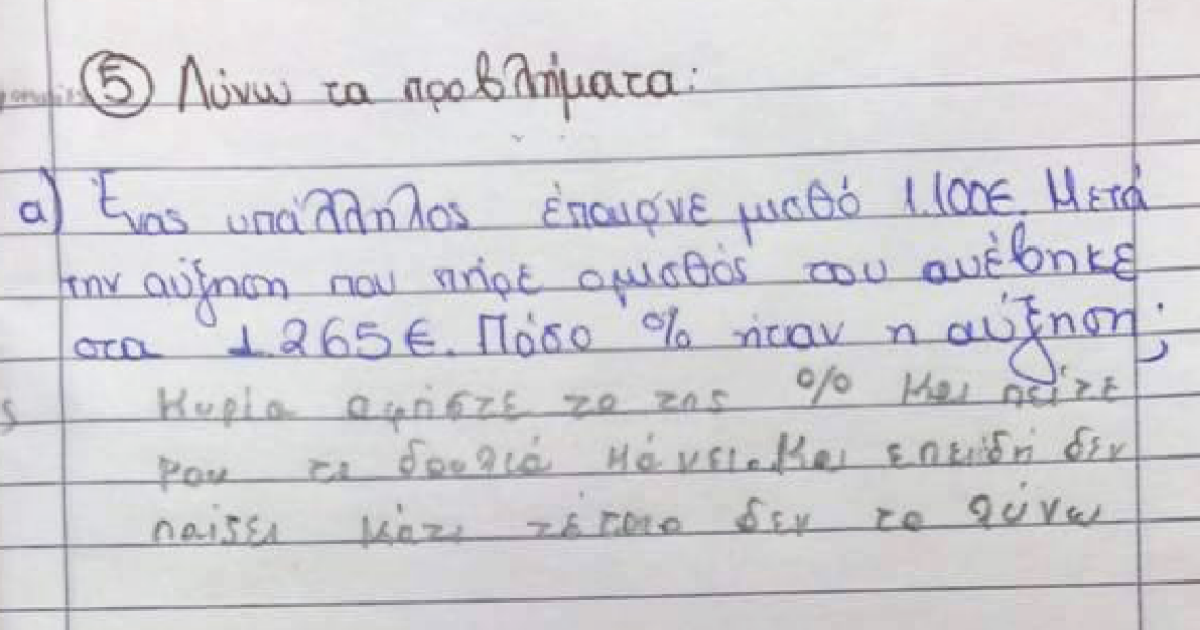 5 Λύνω τα προβλήματα:
α) Ένας υπάλληλος έπαιρνε μισθό 1.100€. Μετά
την αύξηση που πήρε ο μισθός του ανέβηκε
στα 1.265€. Πόσο % ήταν η αύξηση;
Κυρία αφήστε το της % και πείτε
μου τι δουλιά κάνει. Και επειδή δεν
παίζει κάτι τέτοιο δεν το λύνω